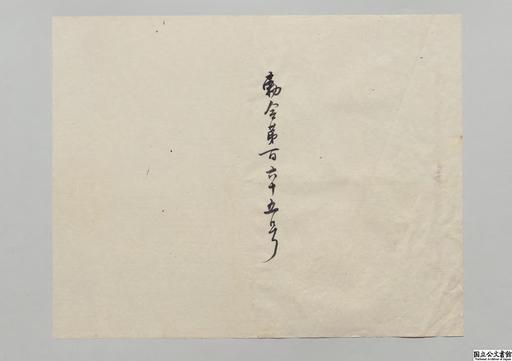 勅令第百六十五号
国立公文書館
National Archives of Japan